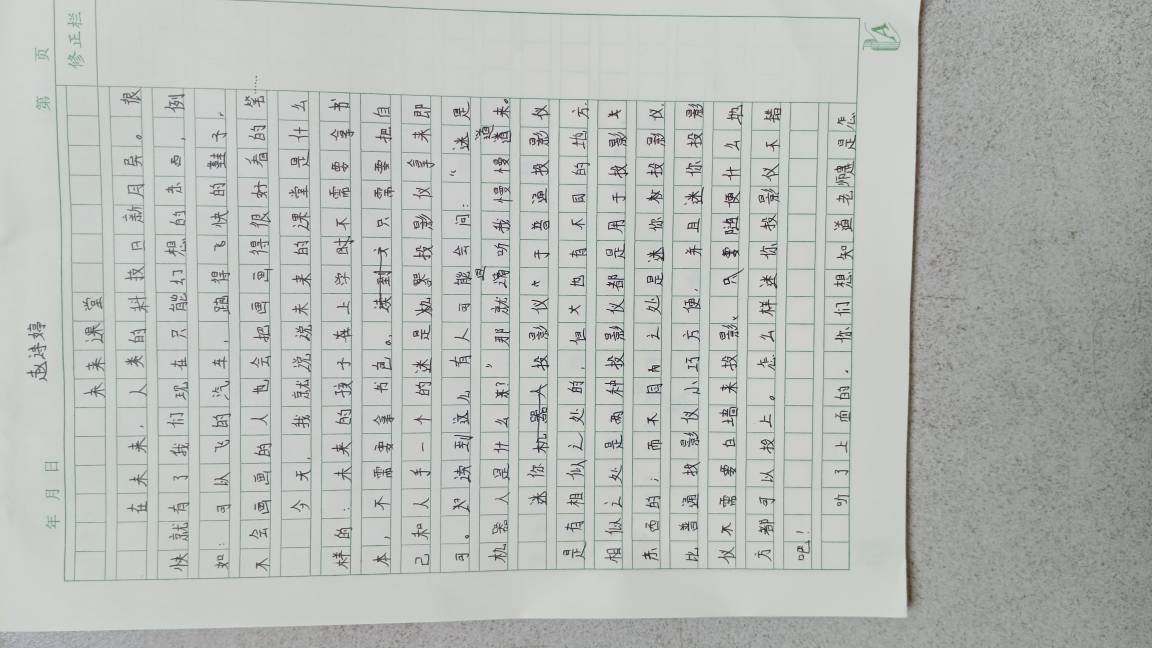 赵诗婷
年 月 日 第 页
修正栏
未来课堂
在未来，人类的科技日新月异。很
快就有了我们现在只能幻想的东西，例
如：可以飞的汽车，跑得飞快的鞋子，
不会画画的人也会把画画得很好看的笔……
今天，我就说说未来的课堂是什么
样的：未来的孩子在上学时不需要拿书
本，不需要拿书包。只需要把自
己和人手一个的迷是投影仪拿来即
可。读到这儿有人可能会问：“迷是
机器人是什么？”那就请听我慢慢道来。
迷你投影仪于普通投影仪
是有相似之处的，但也有不同的地方。
相似之处是两种投影仪都是用于投影
东西的；而不同之处是迷你投影仪
比普通投影仪小巧方便，并且迷你投影
仪不需要白墙来投影、只要随便什么地
方都可以投上。怎么样迷你投影仪不错
吧！
听了上面的，你们想知道老师是怎